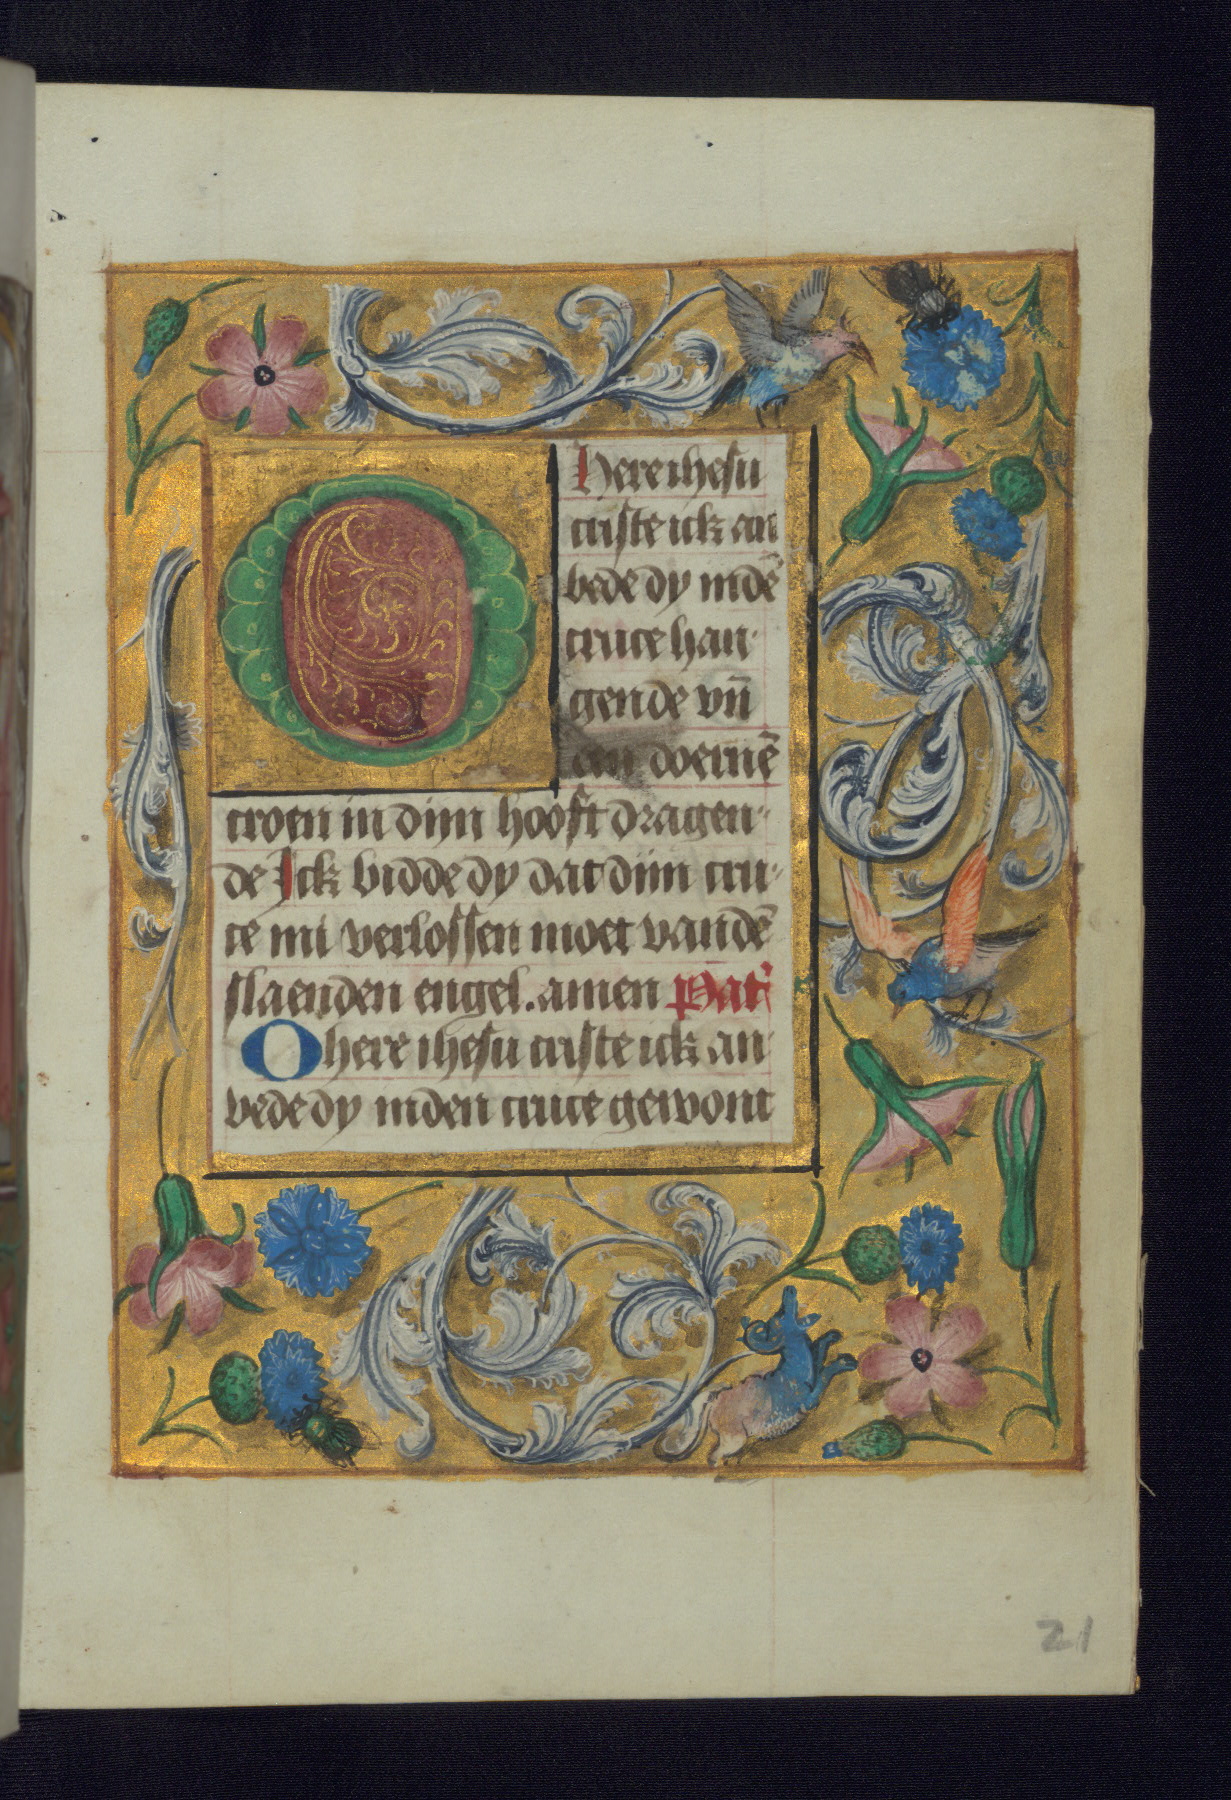 O Here ihesu
criste ick an
bede dy indē
cruce han-
gende vn̄
an doernē
croen in dijn hooft dragen-
de Ick bidde dy dat dijn cru-
ce mi verlossen moet vandē
slaenden engel. amen Pat̄
O here ihesu criste ick an
bede dy inden cruce gewont
21